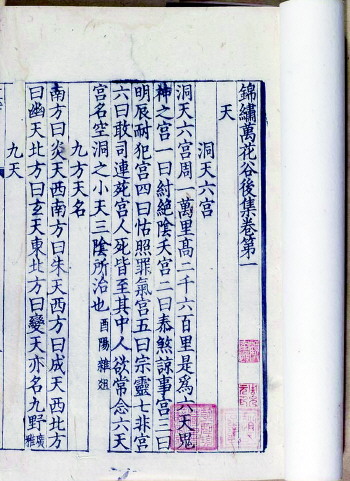 錦繡萬花谷後集卷第一
天
洞天六宫
洞天六宫周一萬里髙二千六百里是爲六天鬼
神之宫一曰紂絶隂天宫二曰泰煞諒事宫三曰
明辰耐犯宫四曰怙照罪氣宫五曰宗靈七非宫
六曰敢司連宛宫人死皆至其中人欲常念六天
宫名空洞之小天三隂所治也 酉陽雜俎
九方天名
南方曰炎天西南方曰朱天西方曰成天西北方
曰幽天北方曰玄天東北方曰變天亦名九野 廣雅
九天